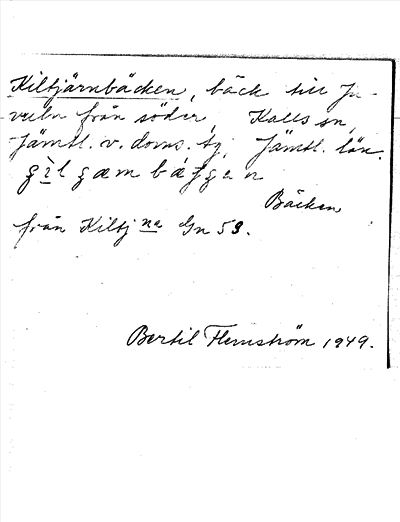 Kiltjärnbäcken, bäck till Ju-
veln från söder, Kalls sn,
Jämtl. v. doms. tg, Jämtl. län.
Bäcken
från Kiltj na Gn 53.
Bertil Flemström 1949.